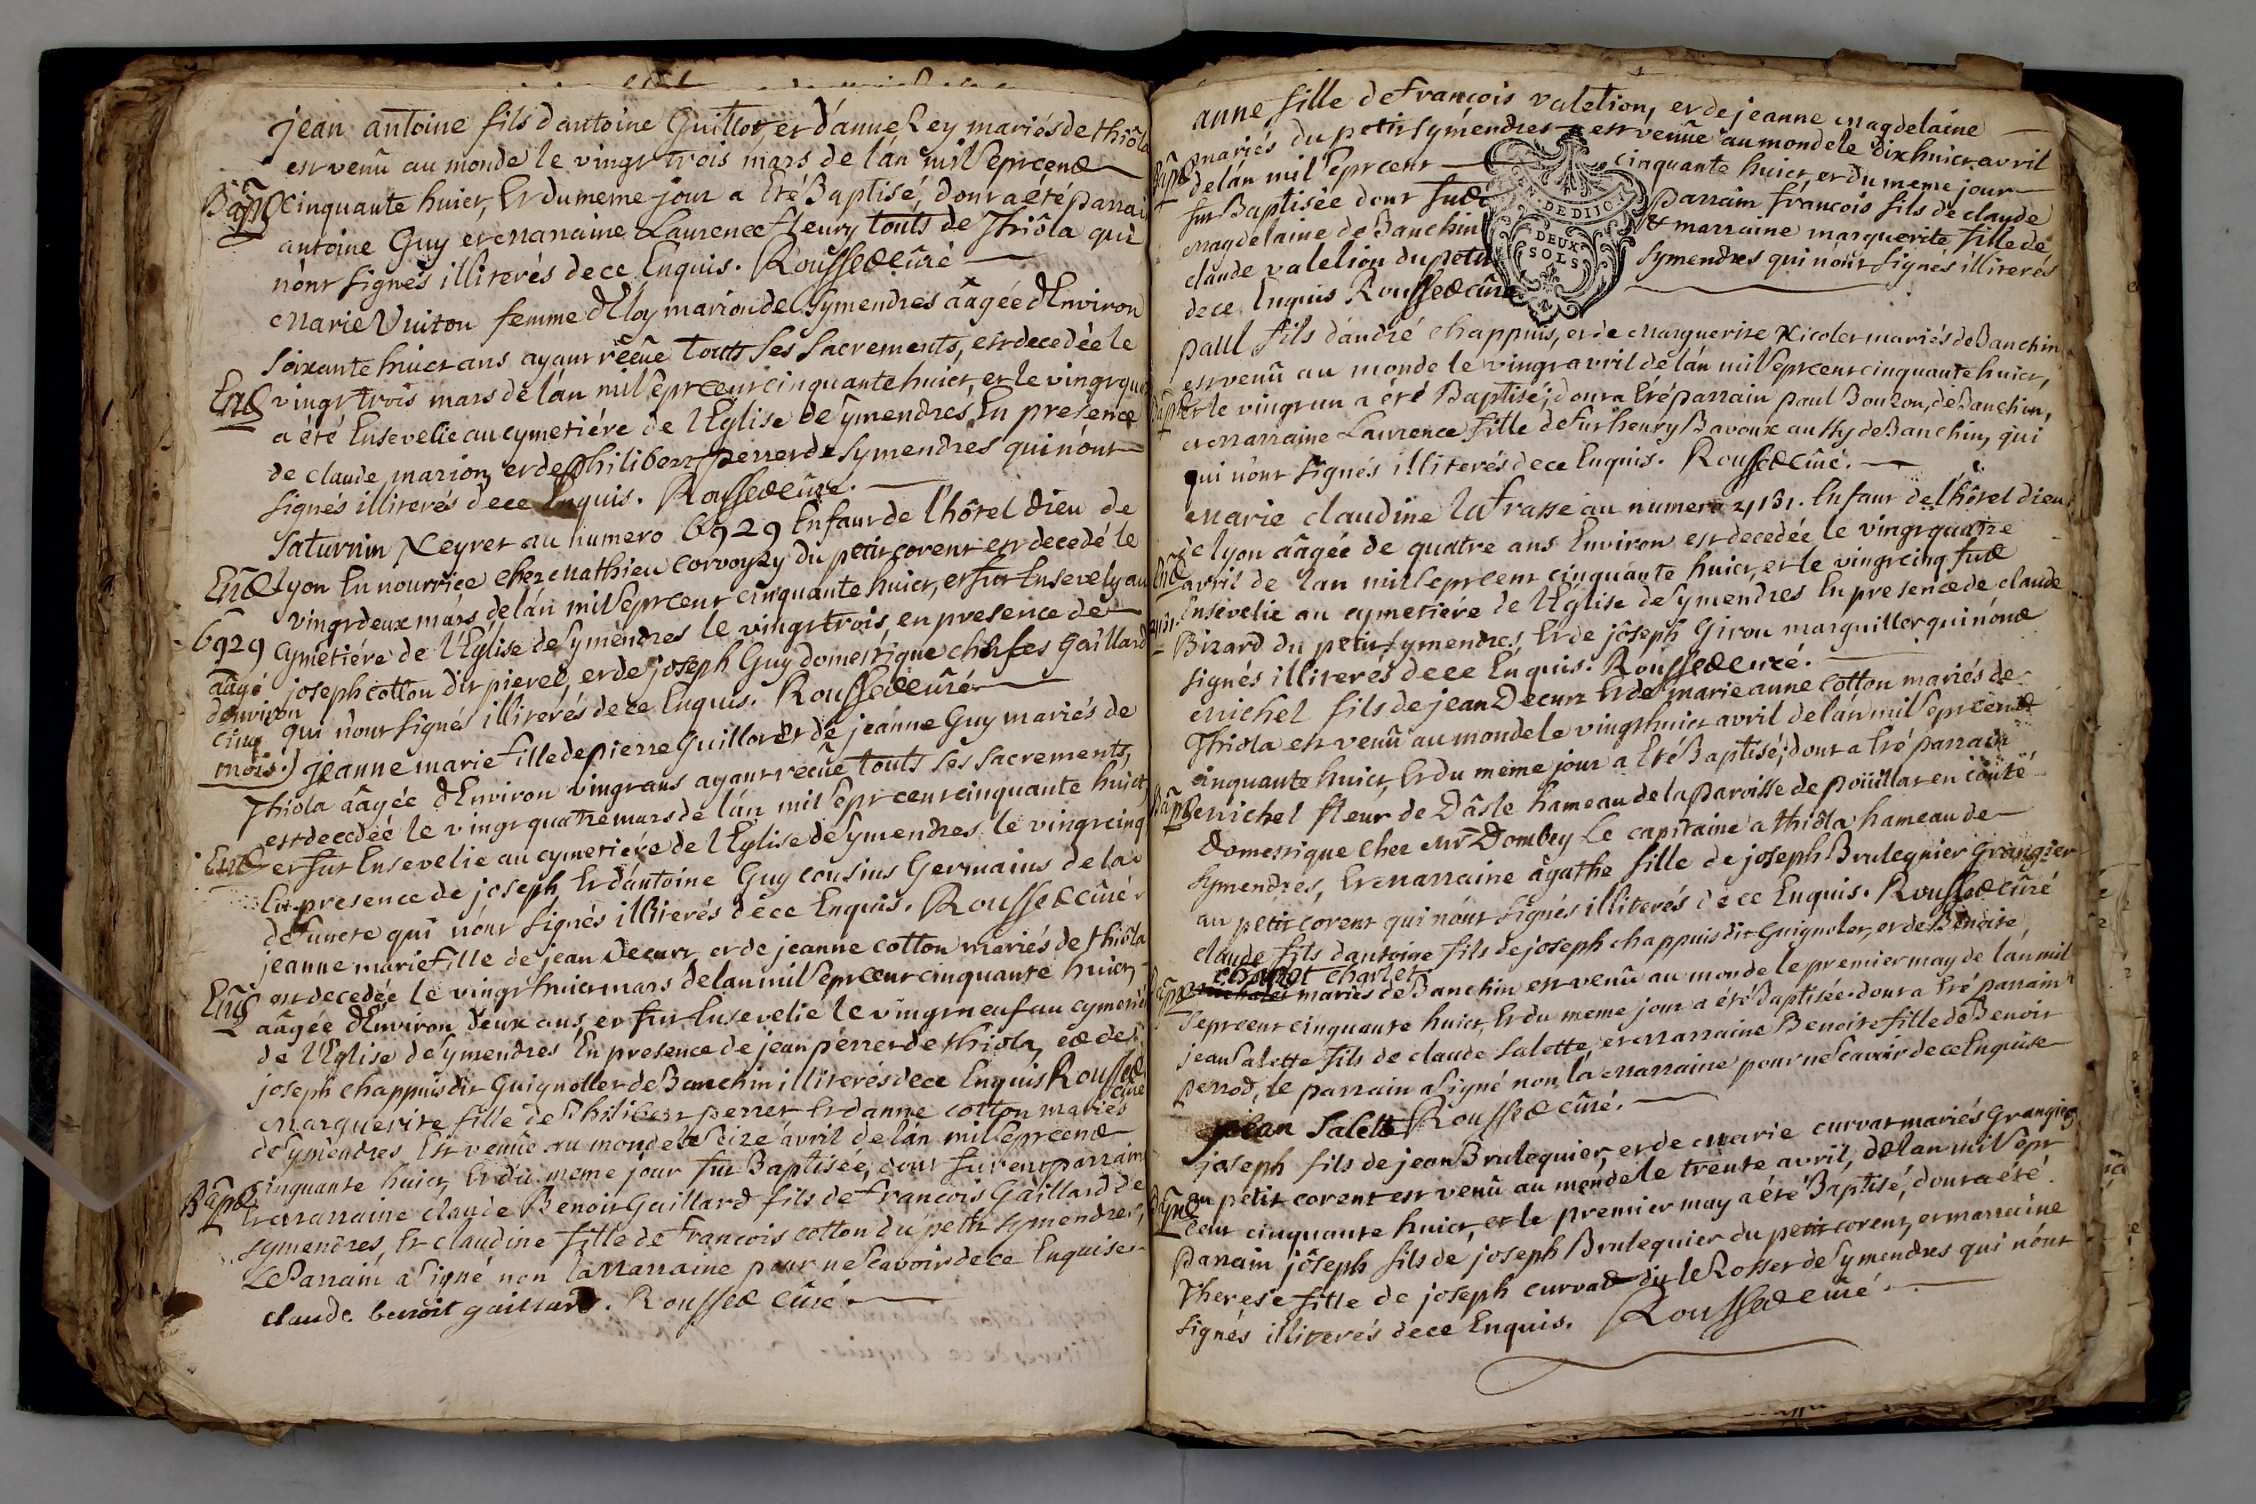 jean antoine fils dantoine Guillot et d'anne Rey mariés de thiôla
est venû au monde le vingt trois mars de l'án mil sept cent
Bapt cinquante huict, Et du meme jour a Eté Baptisé, dont a été parrai
antoine Guy et marraine Laurence fleury touts de Thiôla qui
n'ont signés illiterés de ce Enquis. Rousset curé
Marie Vuiton femme d'Eloy marion de Symendres aâgée d'Environ
soixante huict ans ayant reçüe touts ses sacrements, est decedée le
Ent vingt trois mars de l'án mil sept cent cinquante huict, et le vingt qua
a été Ensevelie au cymetiére de l'Eglise de Symendres, En presence
de claude marion, et de philibert perret de Symendres qui n'ont
signés illiterés de ce Enquis. Rousset curé.
Saturnin Neyret au numero 6929 Enfant de l'hôtel Dieu de
Ent Lyon En nourrice chez Mathieu Corvoyzy du petit corent est decedé le
vingt deux mars de l'án mil sept cent cinquante huict, et fut Ensevely au
6929 cymetiére de l'Eglise de Symendres le vingt trois en presence de
aâgé joseph cotton dit pierre, et de joseph Guy domestique chez les gaillard
d'environ
cinq qui n'ont signé illiterés de ce Enquis. Rousset curé
mois.) jeanne marie fille de pierre Guillot et de jeánne Guy mariés de
Thiola aâgée d'Environ vingt ans ayant reçüe touts ses sacrements,
est decedée le vingt quatre mars de l'án mil sept cent cinquante huict
Ent et fut Ensevelie au cymetiére de l'Eglise de Symendres le vingt cinq
En presence de joseph Et d'antoine Guy cousins Germains de la
defuncte qui n'ont signés illiterés de ce Enquis. Rousset curé.
jeanne marie fille de jean Decurt et de jeanne cotton mariés de thiôla
Ent est decedée le vingt huict mars de lan mil sept cent cinquante huict,
aâgée d'Environ deux ans, et fut Ensevelie le vingt neuf au cymetié
de l'Eglise de Symendres En presence de jean perret de thiola, et de
joseph chappuis dit Guignollet de Banchin illiterés de ce Enquis Rousset
curé
Marguerite fille de Philibert perret Et d'anne cotton mariés
de Symendres Est venüe au monde le seize avril de l'án mil sept cent
cinquante huict, Et du meme jour fut Baptisée, dont furent parrain
Bapt Et marraine claude Benoit Gaillard fils de francois Gaillard de
Symendres, Et claudine fille de francois cotton du petit Symendres,
Le Parrain a signé non la Marraine pour ne sçavoir de ce Enquise.
claude benoit gaillard. Rousset curé.
anne fille de francois valetion, et de jeanne Magdelaine
Bapt mariés du petit symendres est venüe au monde le dix huict avril
de l'án mil sept cent cinquante huict, et du meme jour
fut Baptisée dont fut parrain francois fils de claude
Magdelaine de Banchin & marraine marguerite fille de
claude valetion du petit Symendres qui n'ont signés illiterés
de ce Enquis Rousset curé
EN. DE DIJON
DEUX
SOLS
paul fils d'andré chappuis, et de Marguerite Nicolet mariés de Banchin
est venû au monde le vingt avril de l'án mil sept cent cinquante huict,
Bapt et le vingt un a été Baptisé, dont a Eté parrain paul Bouzon, de Banchin,
et Marraine Laurence fille de fut henry Bavoux aussy de Banchin, qui
qui n'ont signés illiterés de ce Enquis. Rousset curé.
Marie claudine lafrasse au numero 2,131. Enfant de l'hôtel Dieu
de Lyon aâgée de quatre ans Environ est decedée le vingt quatre
Ent avril de l'an mil sept cent cinquante huict, et le vingt cinq fut
2,131. Ensevelie au cymetiére de l'Eglise de Symendres En presence de claude
Bizard du petit Symendres Et de jôseph Girou marguiller qui n'ont
signés illiterés de ce Enquis. Rousset curé.
Michel fils de jean Decurt Et de marie anne cotton mariés de
Thiola est venû au monde le vingt huict avril de l'án mil sept cent
cinquante huict, Et du meme jour a Eté Baptisé, dont a Eté parrain
Bapt Michel fleur de Dâsle hameau de la Paroisse de poüillat en côuté
Domestique chez Mr Dombey Le capitaine a thiôla hameau de
Symendres, Et Marraine âgathe fille de joseph Brulequier Grangier
au petit corent qui n'ont signés illiterés de ce Enquis. Rousset curé
claude fils dantoine fils de joseph chappuis dit Guignolet, et de Benoite
charlot charlet
Bapt mariés de Banchin est venû au monde le premier may de l'án mil
sept cent cinquante huict, Et du meme jour a été Baptisée dont a Eté parrain
jean Salette fils de claude Salette, et Marraine Benoite fille de Benoit
perrod, le parrain a signé non, la Marraine pour ne sçavoir de ce Enquise
jean Salett Rousset curé.
joseph fils de jean Brulequier, et de Marie curvat mariés Grangiers
au petit corent est venû au monde le trente avril, de lan mil sept
Bapt cent cinquante huict, et le premier may a été Baptisé, dont a été
parrain jôseph fils de joseph Brulequier du petit corent, et marraine
Therese fille de joseph curvat dit le Rosset de Symendres qui n'ont
signés illiterés de ce Enquis. Rousset curé.